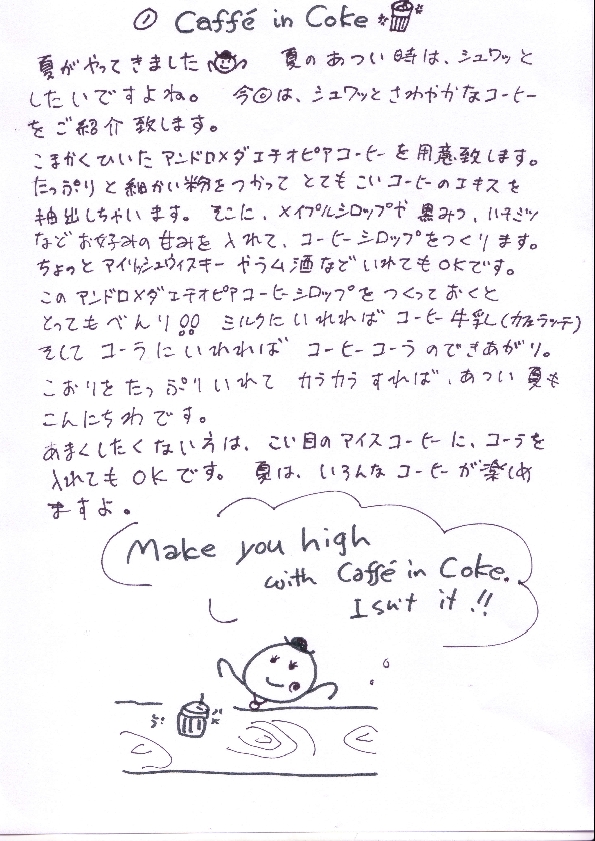 ① Caffé in Coke
夏がやってきました 夏のあつい時は、シュワッと
したいですよね。 今回は、シュワッとさわやかなコーヒー
をご紹介致します。
こまかくひいたアンドロメダエチオピアコーヒーを用意致します。
たっぷりと細かい粉をつかって とてもこいコーヒーのエキスを
抽出しちゃいます。 そこに、メイプルシロップや 黒みつ、ハチミツ
などお好みの甘みを入れて、コーヒーシロップをつくります。
ちょっと アイリッシュウィスキー やラム酒などいれてもOKです。
このアンドロメダエチオピアコーヒーシロップを つくっておくと
とってもべんり!! ミルクにいれれば コーヒー牛乳(カフェラッテ)
そして コーラにいれれば コーヒーコーラのできあがり。
こおりをたっぷりいれて カラカラすれば、あつい夏も
こんにちわです。
あまくしたくない方は、こい目のアイスコーヒーに、コーラを
入れてもOKです。 夏は、いろんなコーヒーが楽しめ
ますよ。
Make you high
with Caffé in Coke.
Isn't it!!